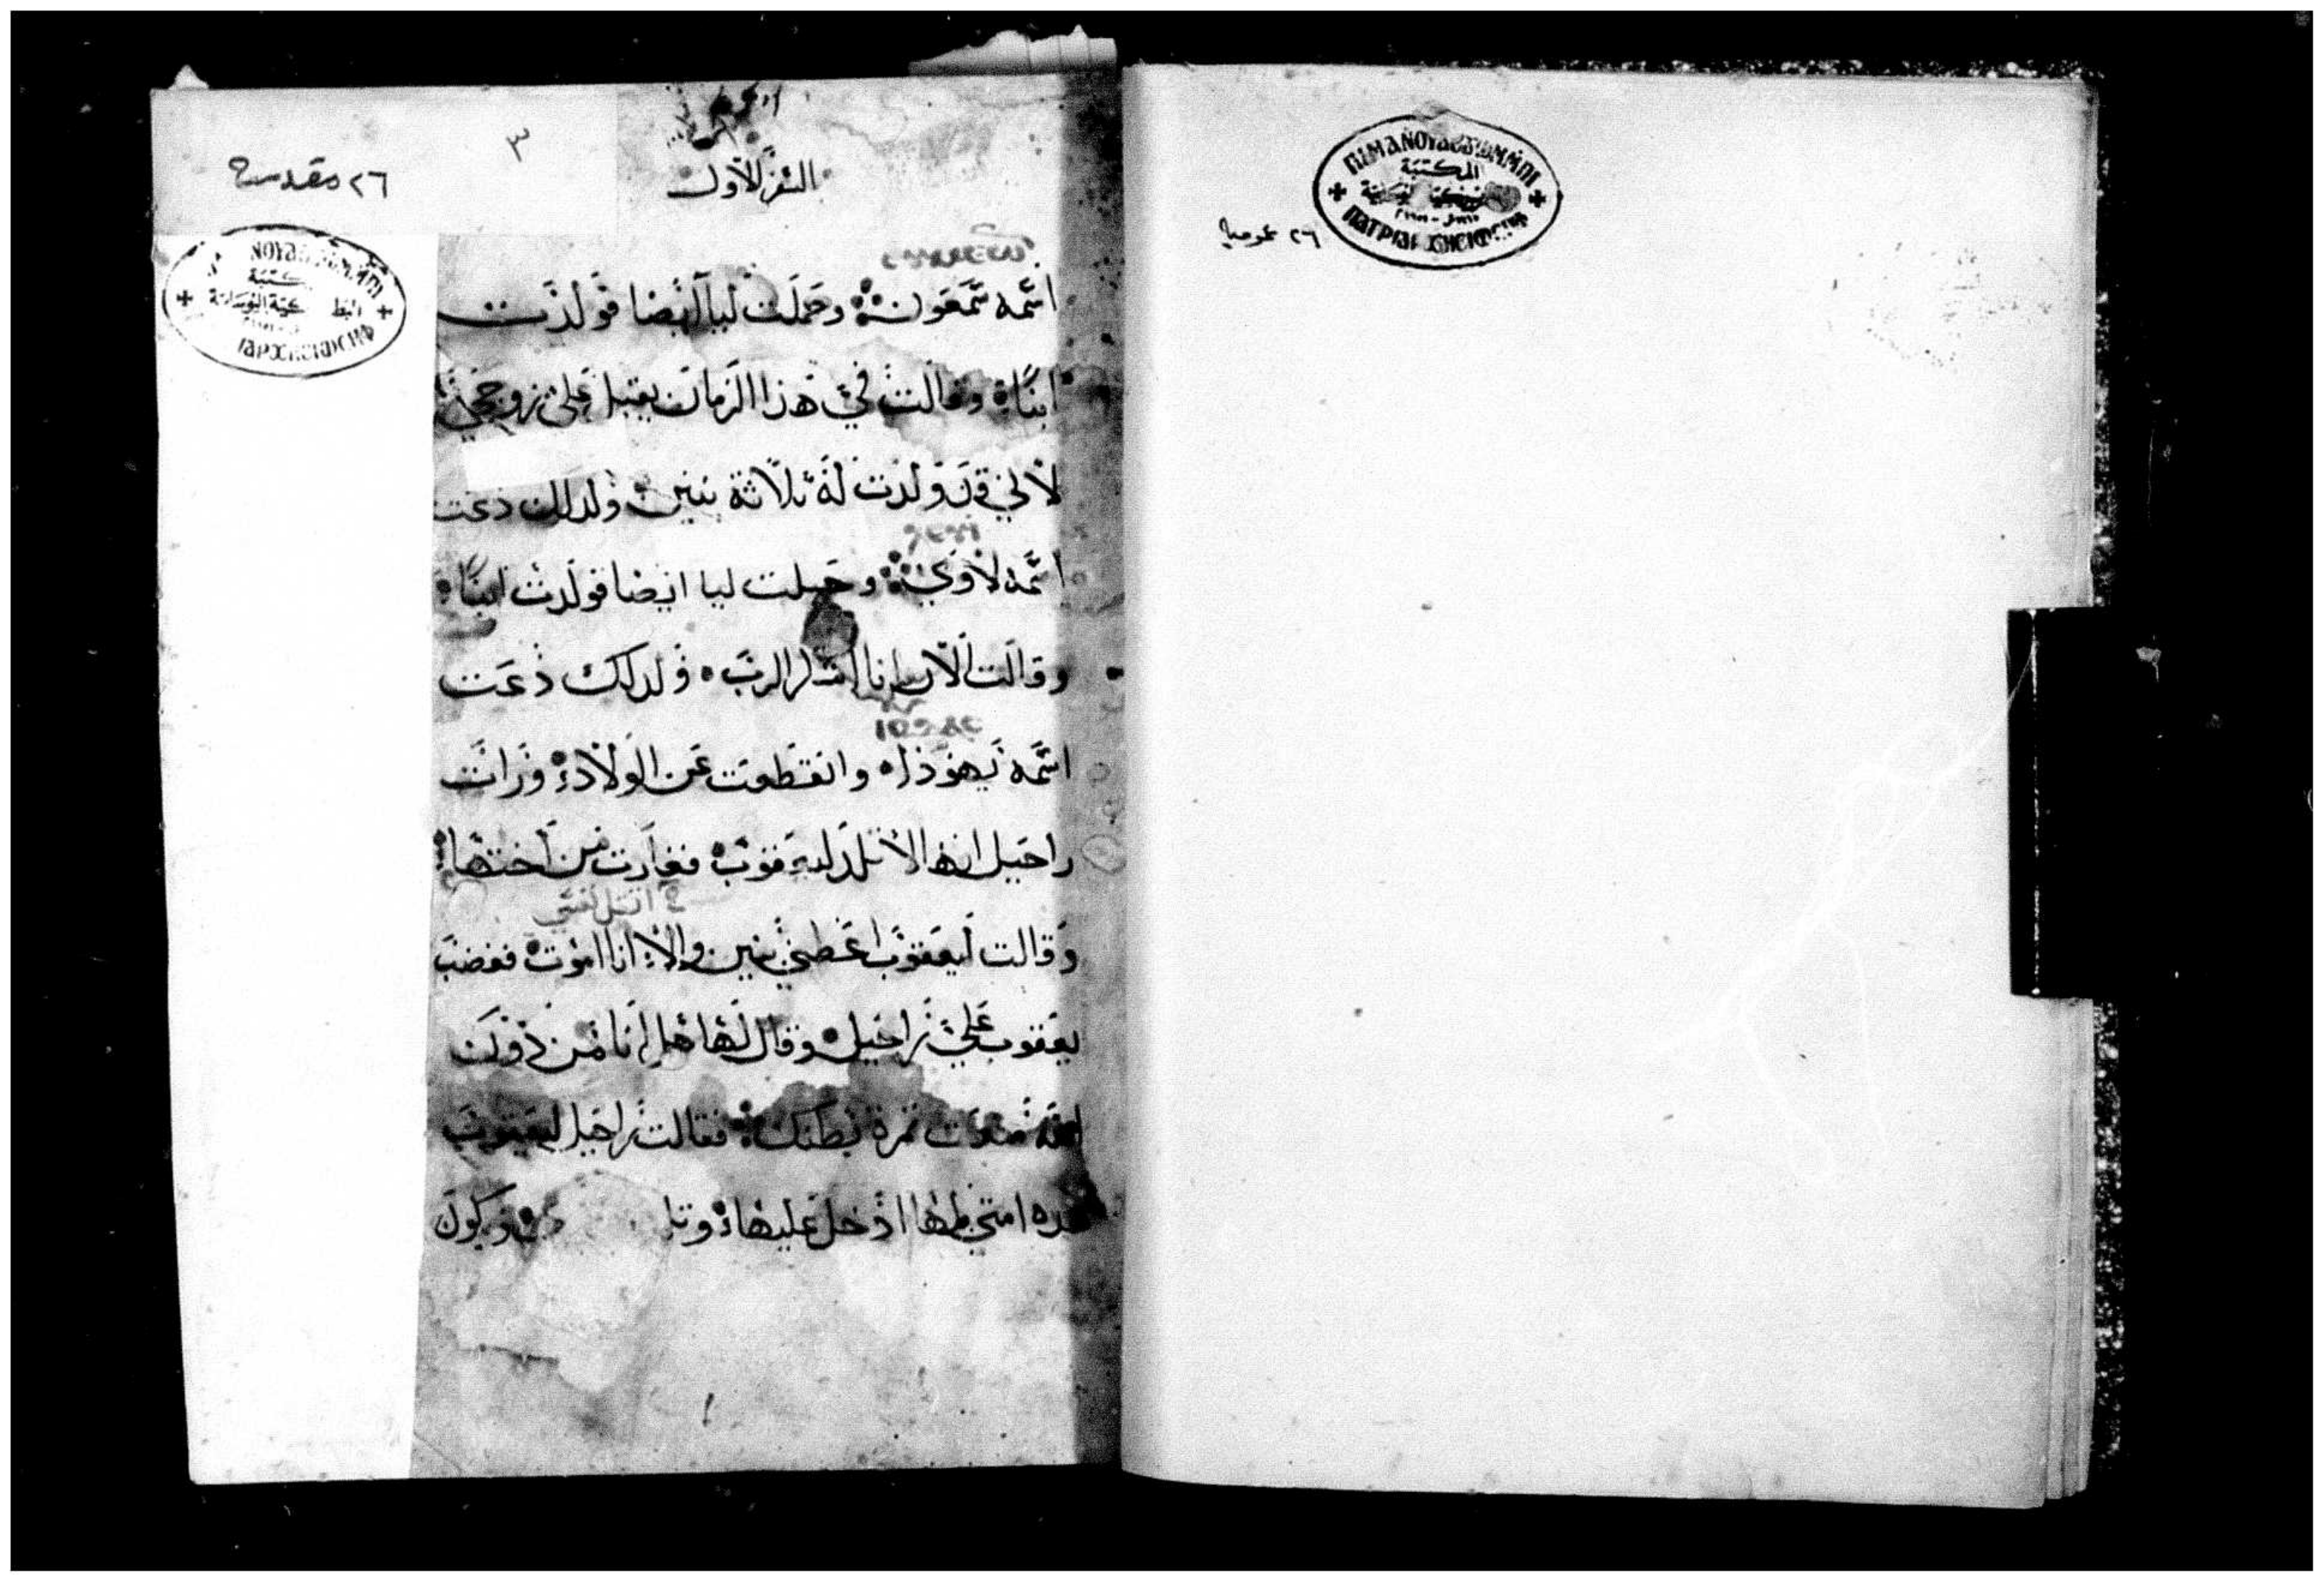 ΠΙΜΑΝ
المكتبة
ΠΑΤΡΙΑΡ
٢٦ عمومية
٣
٢٦ مقدسة
السفر الاول
اسمه سمعون وحملت ليا ايضا فولدت
ابنًا وقالت في هذا الزمان يقبل علي زوجي
لاني قد ولدت له ثلاثة بنين ولدلك دعت
اسمه لاوي وحبلت ليا ايضا فولدت ابنًا
وقالت الان انا اشكر الرب ولدلك دعت
اسمه يهودا وانقطعت عن الولاد ورات
راحيل انها لا تلد ليعقوب فغارت من اختها
وقالت ليعقوب اعطني بنين والا انا اموت فغضب
يعقوب علي راحيل وقال لها هل انا من دون
الله منعت ثمرة بطنك فقالت راحيل ليعقوب
هده امتي بلها ادخل عليها وتلد ويكون